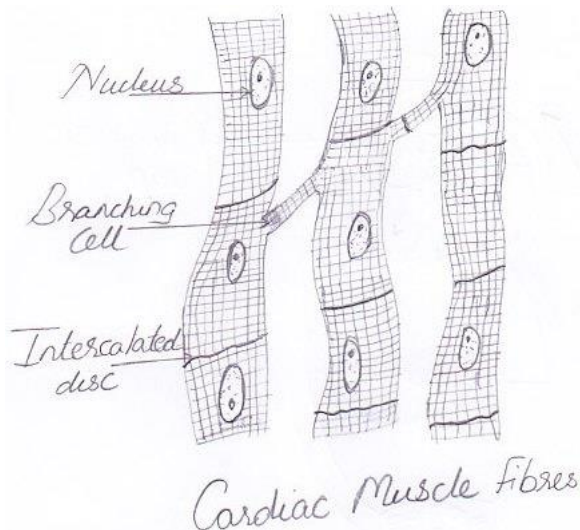 Nucleus
Branching
Cell
Intercalated
disc
Cardiac Muscle Fibres